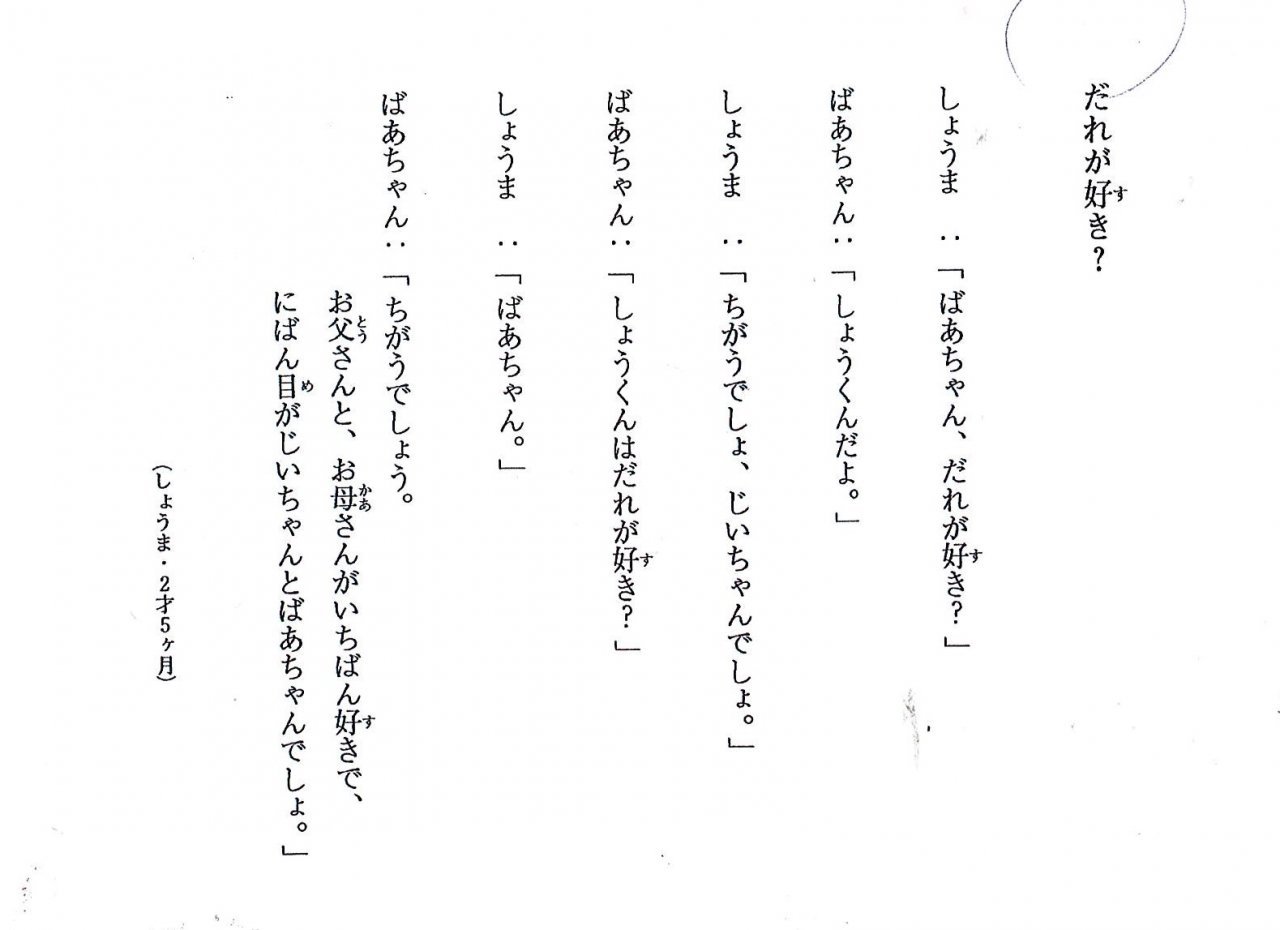 だれが好き?
しょうま:「ばあちゃん、だれが好き?」
ばあちゃん:「しょうくんだよ。」
しょうま:「ちがうでしょ、じいちゃんでしょ。」
ばあちゃん:「しょうくんはだれが好き?」
しょうま:「ばあちゃん。」
ばあちゃん:「ちがうでしょう。
お父さんと、お母さんがいちばん好きで、
にばん目がじいちゃんとばあちゃんでしょ。」
(しょうま・2才5ヶ月)